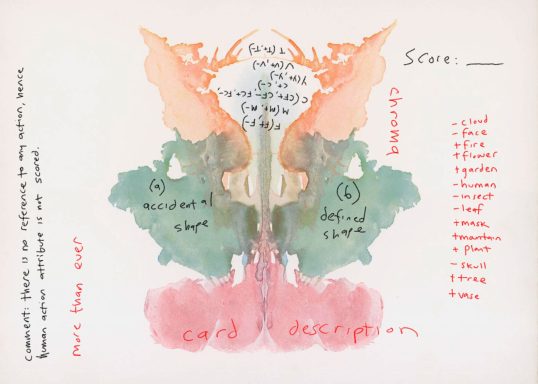 Score: ___
F (F+, F-)
M (M+, M-)
C (CF+, CF-, FC+, FC-,
C+, C-)
Y (Y+, Y-)
V (V+, V-)
T (T+, T-)
comment: there is no reference to any action, hence
human action attribute is not scored.
more than ever
(a)
accidental
shape
(b)
defined
shape
chroma
- cloud
- face
+ fire
+ flower
+ garden
- human
- insect
- leaf
+ mask
+ mountain
+ plant
- skull
+ tree
+ vase
card description